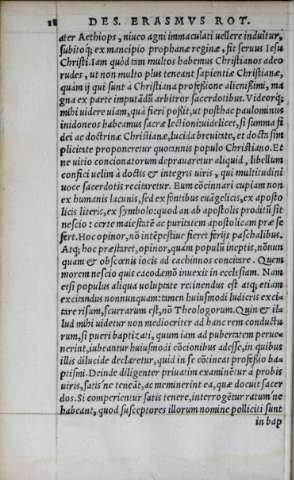 18 DES. ERASMVS ROT.
ater Aethiops, niueo agni immaculati uellere induitur,
subitoq; ex mancipio prophanæ reginæ, fit seruus Iesu
Christi. Iam quòd tam multos habemus Christianos adeo
rudes, ut non multo plus teneant sapientiæ Christianæ,
quàm ij qui sunt à Christiana professione alienissimi, ma
gna ex parte imputādū arbitror sacerdotibus. Videorq;
mihi uidere uiam, qua fieri possit, ut posthac paulo minus
inidoneos habeamus sacræ lectioni uidelicet, si summa fi
dei ac doctrinæ Christianæ, lucida breuitate, et docta sim
plicitate proponeretur quotannis populo Christiano. Et
ne uitio concionatorum deprauaretur aliquid, libellum
confici uelim à doctis & integris uiris, qui multitudini
uoce sacerdotis recitaretur. Eum cōcinnari cupiam non
ex humanis lacunis, sed ex fontibus euāgelicis, ex aposto
licis literis, ex symbolo: quod an ab apostolis proditū sit
nescio: certe maiestatē ac puritatem apostolicam præ se
fert. Hoc opinor, nō intēpestiue fieret ferijs paschalibus.
Atq; hoc præstaret, opinor, quàm populū ineptis, nōnun
quam & obscœnis iocis ad cachinnos concitare. Quem
morem nescio quis cacodæmō inuexit in ecclesiam. Nam
etsi populus aliqua uoluptate retinendus est atq; etiam
exciendus nonnunquam: tamen huiusmodi ludicris exci-
tare risum, scurrarum est, nō Theologorum. Quin & il-
lud mihi uidetur non mediocriter ad hanc rem conductu
rum, si pueri baptizati, quum iam ad pubertatem perue-
nerint, iubeantur huiusmodi cōcionibus adesse, in quibus
illis dilucide declaretur, quid in se cōtineat professio ba-
ptismi. Deinde diligenter priuatim examinētur à probis
uiris, satis ne teneāt, ac meminerint ea, quæ docuit sacer
dos. Si comperientur satis tenere, interrogētur ratum ne
habeant, quod susceptores illorum nomine polliciti sunt
in bap